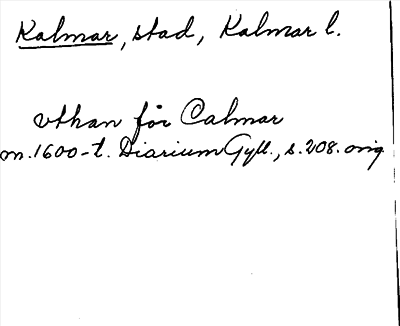 Kalmar, stad, Kalmar l.
vthan för Calmar
m. 1600-t. Diarium Gyll., s. 208. orig.